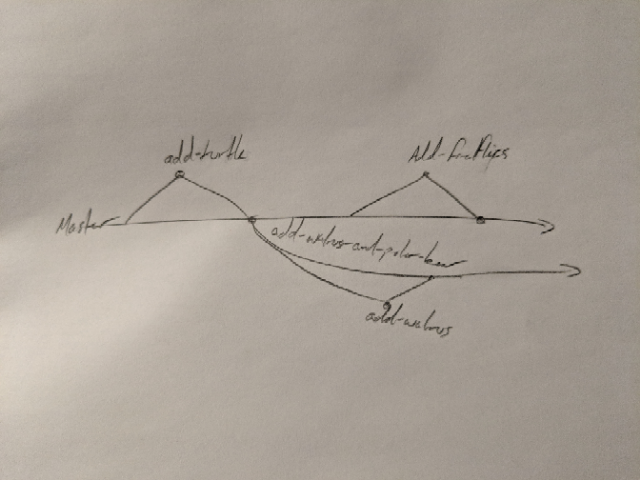 add-turtle
Add-backflips
Master
add-walrus-and-polar-bear
add-walrus